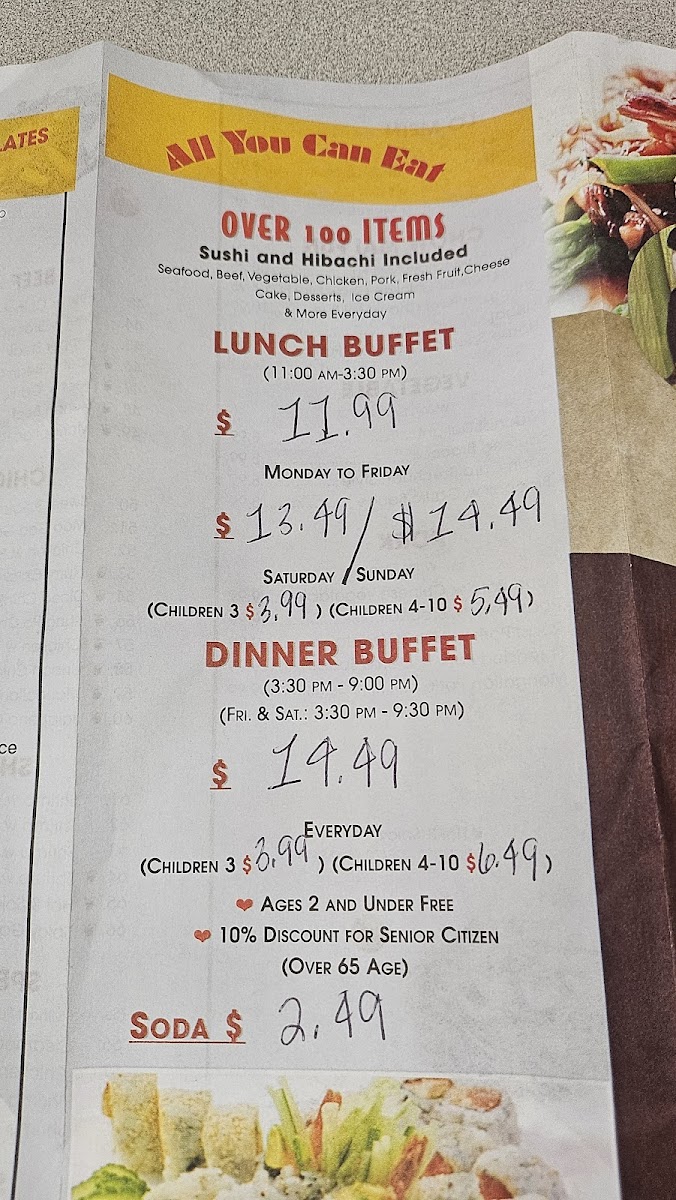 LATES
All You Can Eat
OVER 100 ITEMS
Sushi and Hibachi Included
Seafood, Beef, Vegetable, Chicken, Pork, Fresh Fruit, Cheese
Cake, Desserts, Ice Cream
& More Everyday
LUNCH BUFFET
(11:00 AM-3:30 PM)
$ 11.99
MONDAY TO FRIDAY
$ 13.49 / $ 14.49
SATURDAY / SUNDAY
(CHILDREN 3 $3.99) (CHILDREN 4-10 $5.49)
DINNER BUFFET
(3:30 PM - 9:00 PM)
(FRI. & SAT.: 3:30 PM - 9:30 PM)
$ 14.49
EVERYDAY
(CHILDREN 3 $3.99) (CHILDREN 4-10 $6.49)
❤ AGES 2 AND UNDER FREE
❤ 10% DISCOUNT FOR SENIOR CITIZEN
(OVER 65 AGE)
SODA $ 2.49
ce